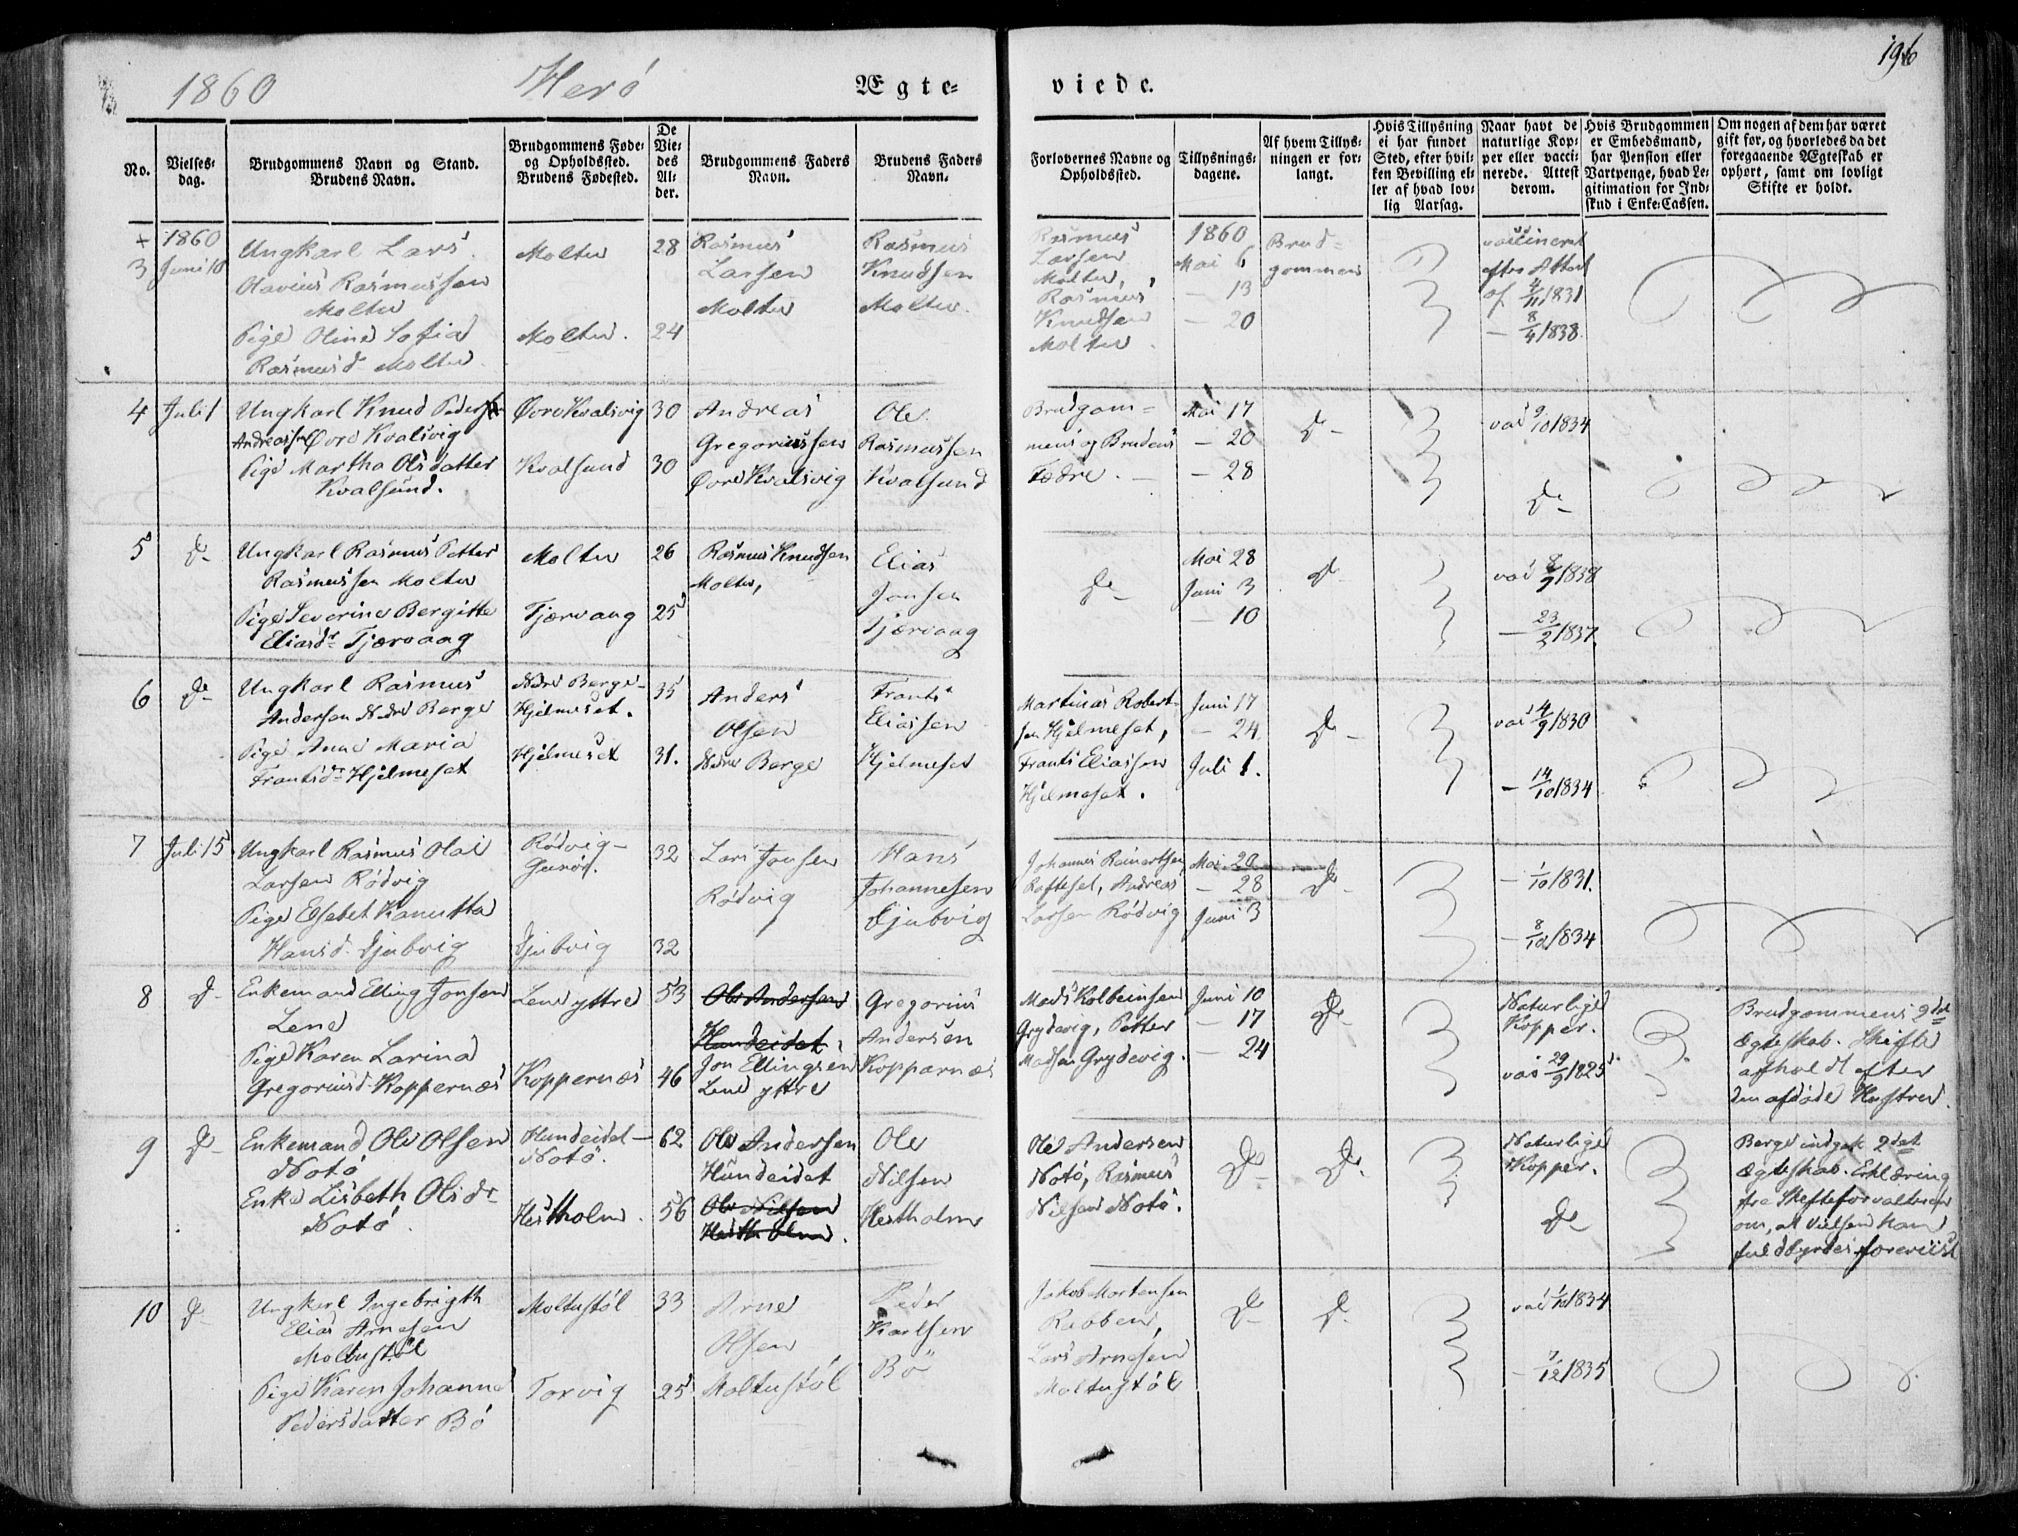 196
1860 Herö Ægte= viede.
No.
Vielses=
dag.
Brudgommens Navn og Stand.
Brudens Navn.
Brudgommens Føde=
og Opholdssted.
Brudens Fødested.
De
Vie=
des
Al=
der.
Brudgommens Faders
Navn.
Brudens Faders
Navn.
Forlovernes Navne og
Opholdssted.
Tillysnings=
dagene.
Af hvem Tillys=
ningen er for=
langt.
Hvis Tillysning
ei har fundet
Sted, efter hvil=
ken Bevilling el=
ler af hvad lov=
lig Aarsag.
Naar havt de
naturlige Kop=
per eller vacci=
nerede. Attest
derom.
Hvis Brudgommen
er Embedsmand,
har Pension eller
Vartpenge, hvad Le=
gitimation for Ind=
skud i Enke=Cassen.
Om nogen af dem har været
gift før, og hvorledes da det
foregaaende Ægteskab er
ophørt, samt om lovligt
Skifte er holdt.
+ 1860
3 Juni 10
Ungkarl Lars
Olavius Rasmussen
Moltu
Pige Oline Sofia
Rasmusd Moltu
Moltu 28
Moltu. 24
Rasmus
Larsen
Moltu
Rasmus
Knudsen
Moltu.
Rasmus
Larsen
Moltu,
Rasmus
Knudsen
Moltu
1860
Mai 6
— 13
— 20
Brud=
gommen
vaccineret
efter Attest
af 4/11 1831
— 8/4 1838.
4 Juli 1
Ungkarl Knud Peder
Andreassen Øvre Kvalsvig
Pige Martha Olsdatter
Kvalsund.
Øvre Kvalsvig 30
Kvalsund 30
Andreas
Gregoriussen
Øvre Kvalsvig
Ole
Rasmussen
Kvalsund
Brudgom=
mens og Brudens
Fædre. —
Mai 17
— 20
— 28
Do
vac 9/10 1834
Do
5 Do
Ungkarl Rasmus Petter
Rasmussen Moltu
Pige Severine Bergitte
Eliasdr Tjærvaag
Moltu 26
Tjærvaag 25
Rasmus Knudsen
Moltu,
Elias
Jonsen
Tjærvaag
Do
Mai 28
Juni 3
— 10
Do
vac 8/9 1838
— 23/2 1837.
6 Do
Ungkarl Rasmus
Andersen Nedre Berge
Pige Anne Maria
Frantsdr Hjelmeset
Nedre Berge—
Hjelmeset. 35
Hjelmeset 31.
Anders
Olsen
Nedre Berge
Frants
Eliassen
Hjelmeset
Martinus Robert-
sen Hjelmeset,
Frants Eliassen
Hjelmeset.
Juni 17
— 24
Juli 1.
Do
vac 4/9 1830
— 14/10 1834
7 Juli 15
Ungkarl Rasmus Olai
Larsen Rödvig
Pige Elsebet Kanutta
Hansd. Djubvig
Rödvig—
32
Djubvig 32
Lars Jonsen
Rödvig
Hans
Johannesen
Djubvig
Johannes Reinertsen
Rafteset, Andreas
Larsen Rödvig
Mai 20
— 28
Juni 3
Do
— 1/10 1831.
— 8/12 1834
8 Do
Enkemand Elling Jonsen
Lene
Pige Karen Larina
Gregoriusd. Koppernæs
Lene yttre 53
Koppernæs 46
Ole Andersen
Hundeidet,
Jon Ellingsen
Lene yttre
Gregorius
Andersen
Kopparnæs
Mads Kolbeinsen
Grydevig, Petter
Madsen Grydevig.
Juni 10
— 17
— 24
Do
Naturlige
Kopper.
vac 29/9 1825.
Brudgommens 2det
Ægteskab. Skifte
afholdt efter
den afdøde Hustru.
9 Do
Enkemand Ole Olsen
Notö
Enke Lisbeth Olsdr
Notö
Hundeidet—
Notö. 62
Hestholm. 56
Ole Andersen
Hundeidet
Ole Nilsen
Hestholm.
Ole
Nilsen
Hestholm
Ole Andersen
Notö, Rasmus
Nilsen Notö.
Do
Do
Naturlige
Kopper.
Do
Begge indgik 2det
Ægteskab. Erklæring
fra Skifteforvalteren
om, at Vielsen kan
fuldbyrdes foreviist
10 Do
Ungkarl Ingebrigth
Elias Arnesen
Moltustöl
Pige Karen Johanne
Pedersdatter Bö
Moltustöl 33
Torvig 25
Arne
Olsen
Moltustöl
Peder
Karlsen
Bö
Jakob Mortensen
Rabben,
Lars Arnesen
Moltustöl
Do
Do
vac 1/10 1834
— 7/12 1835